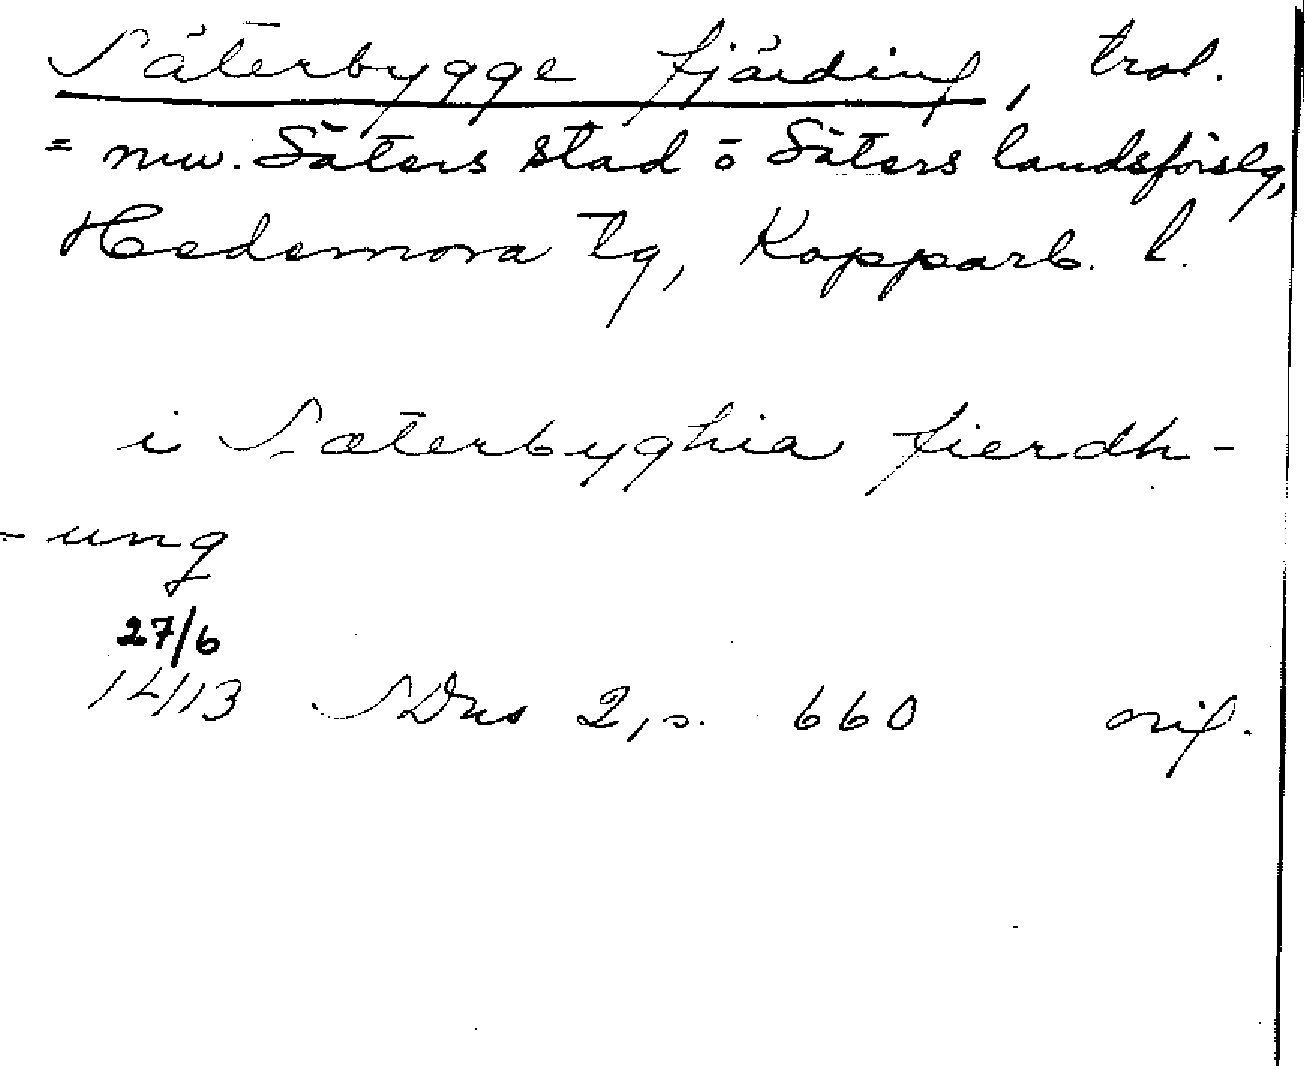 Säterbygge fjärding, trol.
= nuv. Säters stad o Säters landsförslg,
Hedemora tg, Kopparb. l.
i Sæterbyghia fierdh-
-ung
27/6
1413 SDns 2, s. 660 orig.